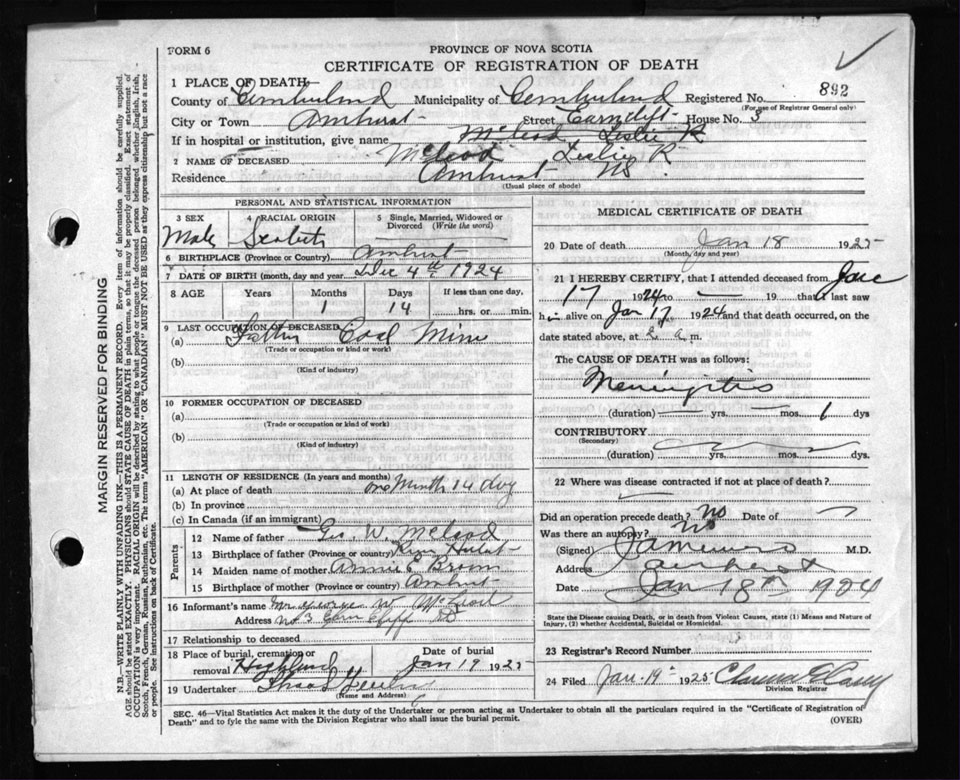 FORM 6
PROVINCE OF NOVA SCOTIA
CERTIFICATE OF REGISTRATION OF DEATH
1 PLACE OF DEATH—
County of Cumberland Municipality of Cumberland Registered No. 892
(For use of Registrar General only)
City or Town Amherst Street House No. 3
If in hospital or institution, give name McLeod Leslie R
2 NAME OF DECEASED McLeod Leslie R
Residence Amherst NS
(Usual place of abode)
PERSONAL AND STATISTICAL INFORMATION
3 SEX
Male
4 RACIAL ORIGIN
5 Single, Married, Widowed or Divorced (Write the word)
6 BIRTHPLACE (Province or Country) Amherst
7 DATE OF BIRTH (month, day and year) Dec 4th 1924
8 AGE Years Months Days If less than one day,
1 14 hrs. or min.
9 LAST OCCUPATION OF DECEASED
(a) Father Coal Mine
(Trade or occupation or kind or work)
(b)
(Kind of industry)
10 FORMER OCCUPATION OF DECEASED
(a)
(Trade or occupation or kind or work)
(b)
(Kind of industry)
11 LENGTH OF RESIDENCE (In years and months)
(a) At place of death one Month 14 day
(b) In province
(c) In Canada (if an immigrant)
Parents
12 Name of father Geo. W. McLeod
13 Birthplace of father (Province or country) River
14 Maiden name of mother Annie E
15 Birthplace of mother (Province or country) Amherst
16 Informant's name Mr George W McLeod
Address No 3 St
17 Relationship to deceased
18 Place of burial, cremation or removal Highland
Date of burial
Jan 19 1925
19 Undertaker
(Name and Address)
MEDICAL CERTIFICATE OF DEATH
20 Date of death Jan 18 1925
(Month, day and year)
21 I HEREBY CERTIFY, that I attended deceased from Jan
17 1924 to — 19 that I last saw
him alive on Jan 17 1924 and that death occurred, on
date stated above, at a m.
The CAUSE OF DEATH was as follows:
Meningitis
(duration) — yrs. — mos. 1 dys
CONTRIBUTORY
(Secondary)
(duration) yrs. mos. dys.
22 Where was disease contracted if not at place of death?
Did an operation precede death? No Date of
Was there an autopsy? No
(Signed) M.D.
Address Amherst
Date Jan 18th 1924
State the Disease causing Death, or in death from Violent Causes, state (1) Means and Nature of
Injury, (2) whether Accidental, Suicidal or Homicidal.
23 Registrar's Record Number
24 Filed Jan. 19 1925
Division Registrar
SEC. 46—Vital Statistics Act makes it the duty of the Undertaker or person acting as Undertaker to obtain all the particulars required in the "Certificate of Registration of
Death" and to fyle the same with the Division Registrar who shall issue the burial permit.
(OVER)
MARGIN RESERVED FOR BINDING
N.B.—WRITE PLAINLY WITH UNFADING INK—THIS IS A PERMANENT RECORD. Every item of information should be carefully supplied.
AGE should be stated EXACTLY. PHYSICIANS should STATE CAUSE OF DEATH in plain terms, so that it may be properly classified. Exact statement of
OCCUPATION is very important. RACIAL ORIGIN will be described by stating to what people or tongue the deceased person belonged, whether English, Irish,
Scotch, French, German, Russian, Ruthenian, etc. The terms "AMERICAN" OR "CANADIAN" MUST NOT BE USED as they express citizenship but not a race
or people. See instructions on back of Certificate.